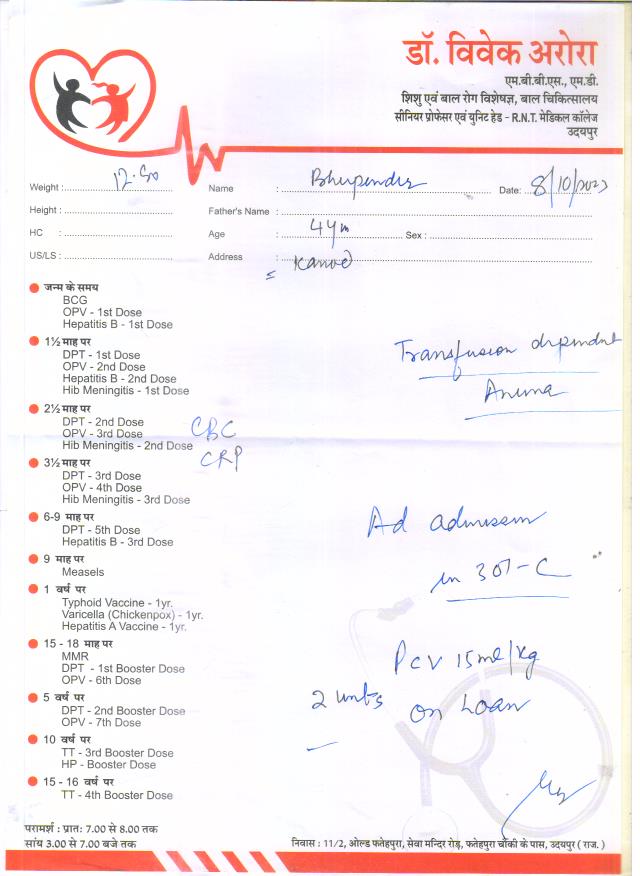 डॉ. विवेक अरोरा
एम.बी.बी.एस., एम.डी.
शिशु एवं बाल रोग विशेषज्ञ, बाल चिकित्सालय
सीनियर प्रोफेसर एवं यूनिट हेड - R.N.T. मेडिकल कॉलेज
उदयपुर
Weight : 12.50 Name : Bhupender Date: 8/10/2023
Height : Father's Name :
HC : Age : 4 ym Sex :
US/LS : Address :
जन्म के समय
BCG
OPV - 1st Dose
Hepatitis B - 1st Dose
1½ माह पर
DPT - 1st Dose
OPV - 2nd Dose
Hepatitis B - 2nd Dose
Hib Meningitis - 1st Dose
Transfusion dependent
Anemia
2½ माह पर
DPT - 2nd Dose
OPV - 3rd Dose
Hib Meningitis - 2nd Dose
CBC
CRP
3½ माह पर
DPT - 3rd Dose
OPV - 4th Dose
Hib Meningitis - 3rd Dose
6-9 माह पर
DPT - 5th Dose
Hepatitis B - 3rd Dose
Ad admission
in 301-C
9 माह पर
Measels
1 वर्ष पर
Typhoid Vaccine - 1yr.
Varicella (Chickenpox) - 1yr.
Hepatitis A Vaccine - 1yr.
15 - 18 माह पर
MMR
DPT - 1st Booster Dose
OPV - 6th Dose
PCV 15ml/kg
2 units on Loan
5 वर्ष पर
DPT - 2nd Booster Dose
OPV - 7th Dose
10 वर्ष पर
TT - 3rd Booster Dose
HP - Booster Dose
15 - 16 वर्ष पर
TT - 4th Booster Dose
परामर्श : प्रातः 7.00 से 8.00 तक
सांय 3.00 से 7.00 बजे तक
निवास : 11/2, ओल्ड फतेहपुरा, सेवा मन्दिर रोड़, फतेहपुरा चौकी के पास, उदयपुर ( राज. )